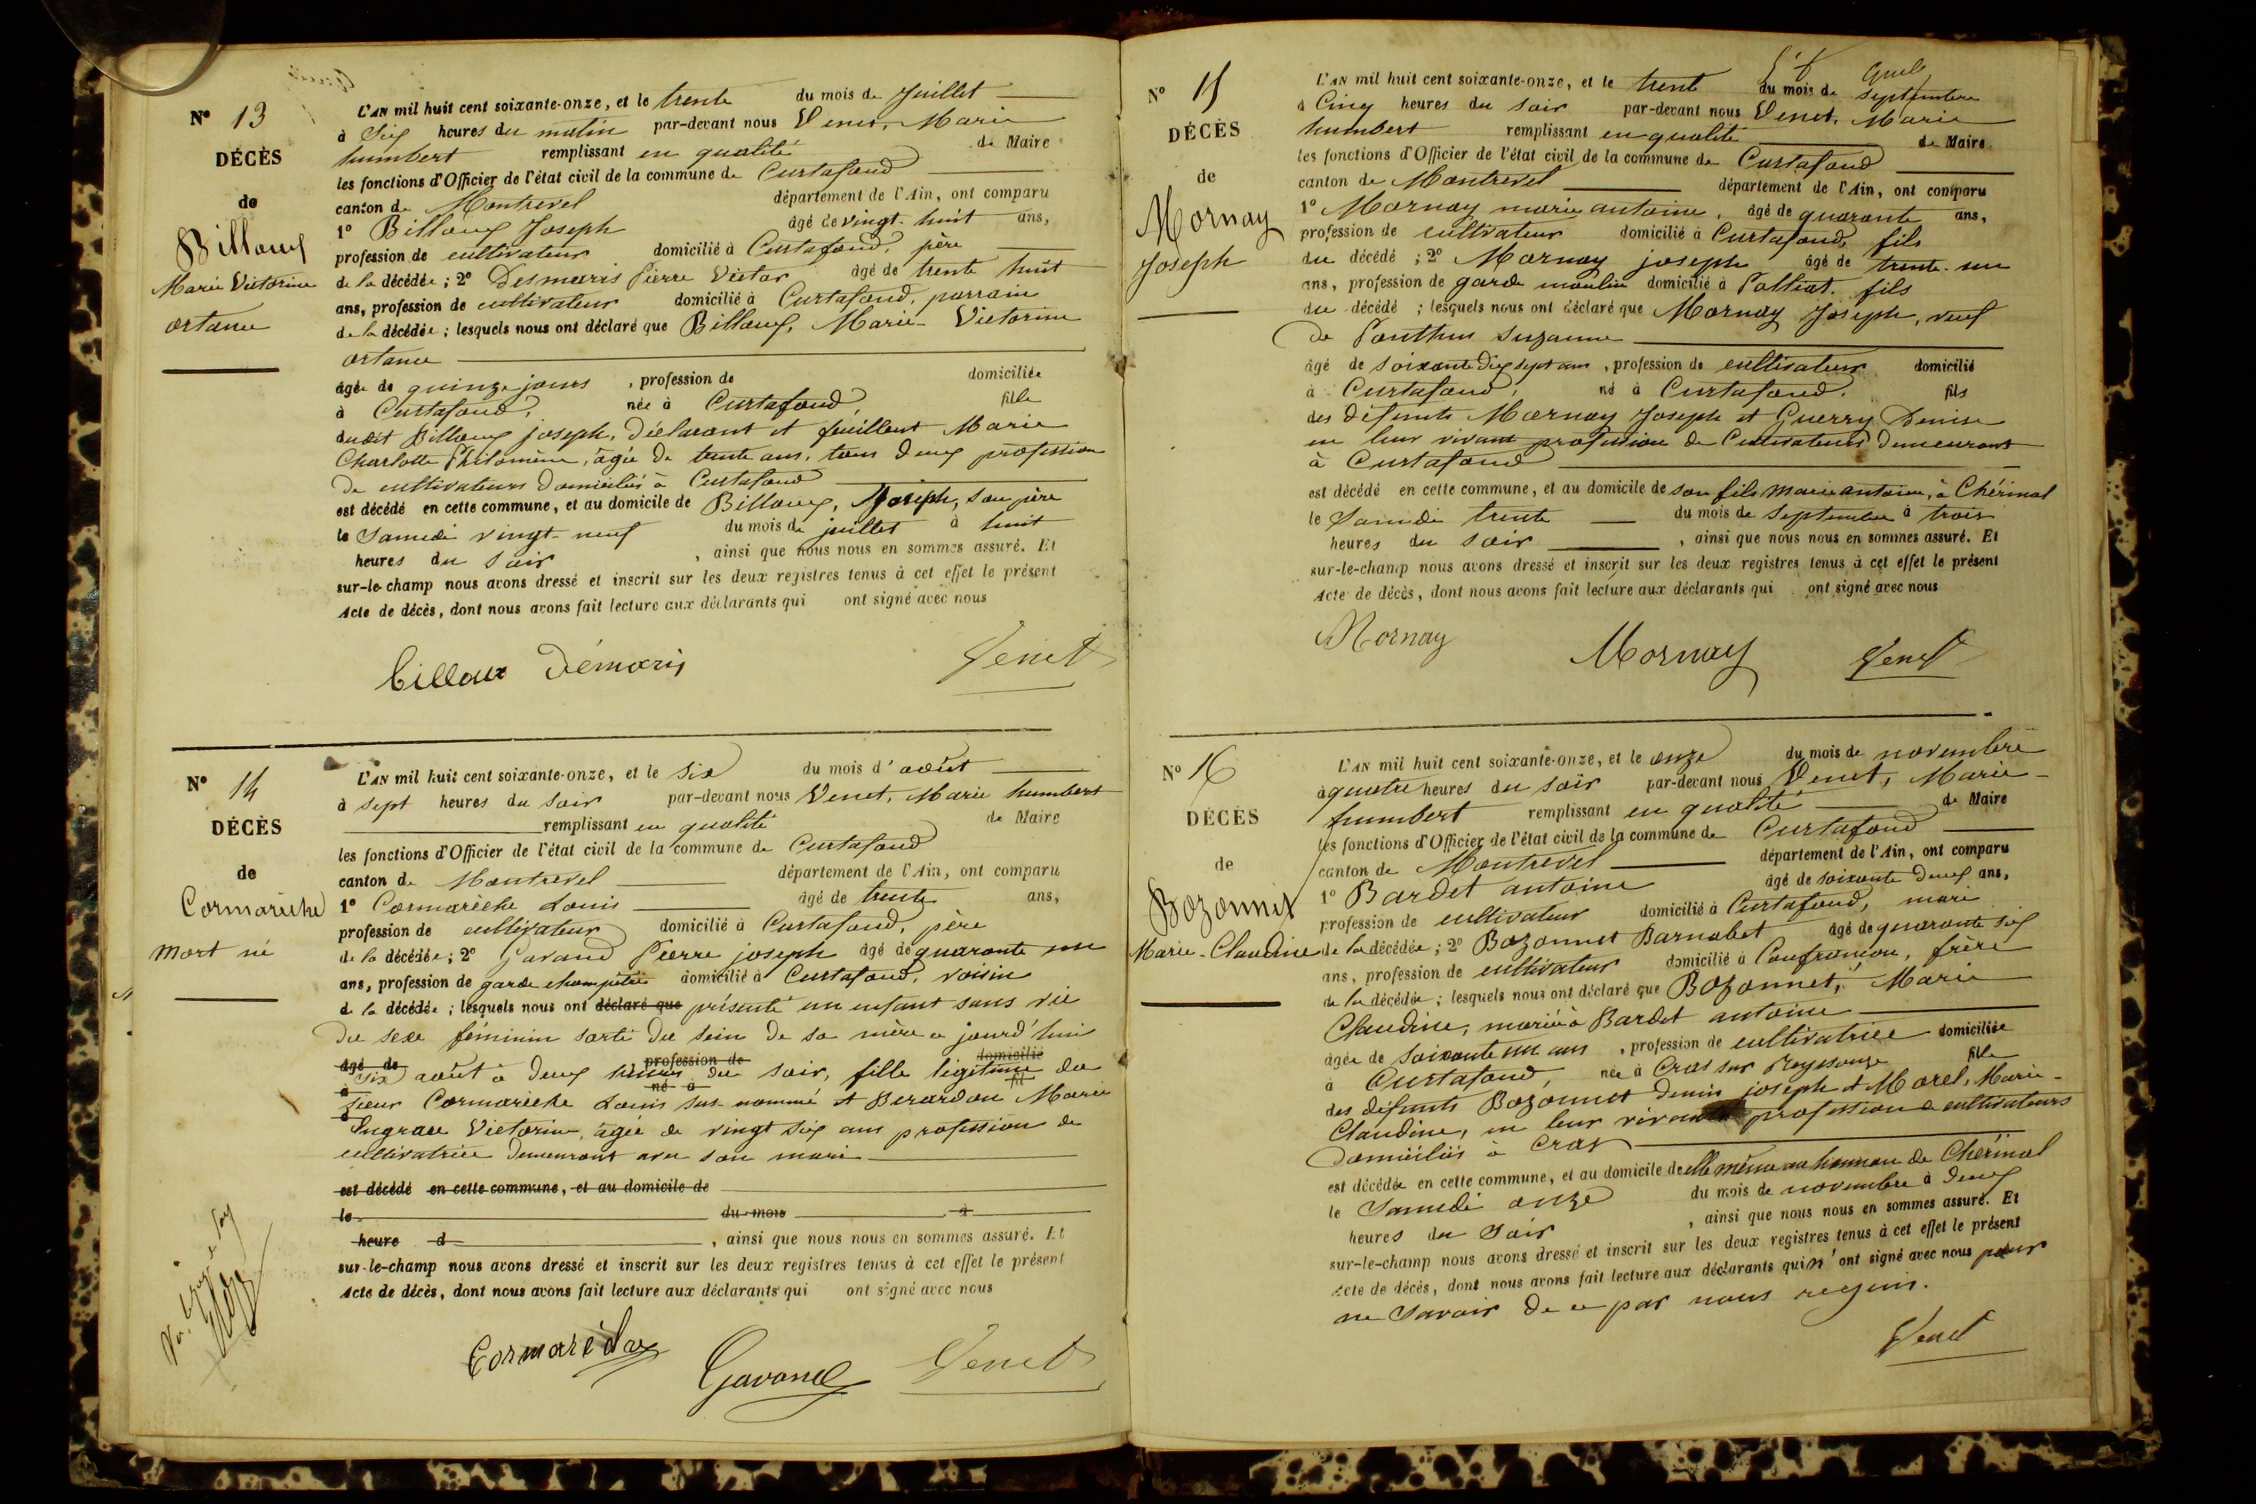 Nº 13
DÉCÈS
de
Billoux
Marie Victorine
ortance
L'AN mil huit cent soixante-onze, et le trente du mois de Juillet
à Six heures du matin par-devant nous Venet, Marie
humbert remplissant en qualité de Maire
les fonctions d'Officier de l'état civil de la commune de Curtafond
canton de Montrevel département de l'Ain, ont comparu
1º Billoux Joseph âgé de vingt-huit ans,
profession de cultivateur domicilié à Curtafond, père
de la décédée; 2º Desmaris Pierre Victor âgé de trente huit
ans, profession de cultivateur domicilié à Curtafond, parrain
de la décédée; lesquels nous ont déclaré que Billoux, Marie-Victorine
ortance
âgée de quinze jours, profession de domiciliée
à Curtafond, née à Curtafond, fille
dudit Billoux joseph, déclarant et feuillent Marie
Charlotte Philomène, âgée de trente ans, tous deux profession
de cultivateurs domiciliés à Curtafond
est décédé en cette commune, et au domicile de Billoux, Joseph, son père
le Samedi vingt-neuf du mois de juillet à huit
heures du soir, ainsi que nous nous en sommes assuré. Et
sur-le-champ nous avons dressé et inscrit sur les deux registres tenus à cet effet le présent
Acte de décès, dont nous avons fait lecture aux déclarants qui ont signé avec nous
billoux Démaris Venet
Nº 14
DÉCÈS
de
Cormarèche
mort né
L'AN mil huit cent soixante-onze, et le six du mois d'août
à sept heures du soir par-devant nous Venet, Marie humbert
remplissant en qualité de Maire
les fonctions d'Officier de l'état civil de la commune de Curtafond
canton de Montrevel département de l'Ain, ont comparu
1º Cormarèche Louis âgé de trente ans,
profession de cultivateur domicilié à Curtafond, père
de la décédée; 2º Gavand Pierre joseph âgé de quarante un
ans, profession de garde champêtre domicilié à Curtafond, voisin
de la décédée; lesquels nous ont déclaré que présenté un enfant sans vie
du sexe féminin sorti du sein de sa mère a jourd'hui
âgé de profession de domicilié
six août à deux heures du soir, fille légitime du
à né à fil
sieur Cormarèche Louis sus-nommé et Berardan Marie
d
Engrace Victorine, âgée de vingt six ans profession de
cultivatrice demeurant avec son mari
est décédé en cette commune, et au domicile de
le du mois à
heure d, ainsi que nous nous en sommes assuré. Et
sur-le-champ nous avons dressé et inscrit sur les deux registres tenus à cet effet le présent
Acte de décès, dont nous avons fait lecture aux déclarants qui ont signé avec nous
Gavand Venet
Nº 15
DÉCÈS
de
Mornay
Joseph
L'AN mil huit cent soixante-onze, et le trente du mois de septembre
à Cinq heures du soir par-devant nous Venet, Marie
humbert remplissant en qualité de Maire
les fonctions d'Officier de l'état civil de la commune de Curtafond
canton de Montrevel département de l'Ain, ont comparu
1º Mornay marie antoine, âgé de quarante ans,
profession de cultivateur domicilié à Curtafond, fils
du décédé; 2º Mornay joseph âgé de trente-un
ans, profession de garde moulin domicilié à Polliat, fils
du décédé; lesquels nous ont déclaré que Mornay Joseph, veuf
de Ponthus Suzanne
âgé de soixante dix sept ans, profession de cultivateur domicilié
à Curtafond, né à Curtafond. fils
des défunts Mornay Joseph et Guerry Denise
en leur vivant profession de Cultivateurs demeurant
à Curtafond
est décédé en cette commune, et au domicile de son fils marie antoine, à Chérinal
le Samedi trente du mois de septembre à trois
heures du soir, ainsi que nous nous en sommes assuré. Et
sur-le-champ nous avons dressé et inscrit sur les deux registres tenus à cet effet le présent
Acte de décès, dont nous avons fait lecture aux déclarants qui ont signé avec nous
Mornay Mornay Venet
Nº 16
DÉCÈS
de
Bozonnet
Marie-Claudine
L'AN mil huit cent soixante-onze, et le onze du mois de novembre
à quatre heures du soir par-devant nous Venet, Marie-
humbert remplissant en qualité de Maire
les fonctions d'Officier de l'état civil de la commune de Curtafond
canton de Montrevel département de l'Ain, ont comparu
1º Bardet antoine âgé de soixante deux ans,
profession de cultivateur domicilié à Curtafond, mari
de la décédée; 2º Bozonnet Barnabet âgé de quarante six
ans, profession de cultivateur domicilié à Confrançon, frère
de la décédée; lesquels nous ont déclaré que Bozonnet, Marie
Claudine, mariée à Bardet antoine
âgée de soixante un ans, profession de cultivatrice domiciliée
à Curtafond, née à Cras sur Reyssouze fille
des défunts Bozonnet Denis joseph et Morel, Marie-
Claudine, en leur vivant profession de cultivateurs
domiciliés à Cras
est décédée en cette commune, et au domicile de elle même au hameau de Chérinal
le Samedi onze du mois de novembre à deux
heures du soir, ainsi que nous nous en sommes assuré. Et
sur-le-champ nous avons dressé et inscrit sur les deux registres tenus à cet effet le présent
Acte de décès, dont nous avons fait lecture aux déclarants qui n'ont signé avec nous pour
ne savoir de ce par nous requis.
Venet